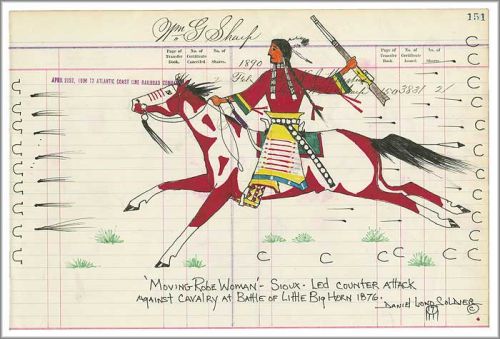 151
Wm G Sharp
Page of Transfer Book. No. of Certificate Cancelled. No. of Shares. Page of Transfer Book. No. of Certificate Issued. No. of Shares.
1890
3831 2
"MOVING ROBE WOMAN" - SIOUX - LED COUNTER ATTACK
AGAINST CAVALRY AT BATTLE OF LITTLE BIG HORN 1876.
DANIEL LONG SOLDIER ©